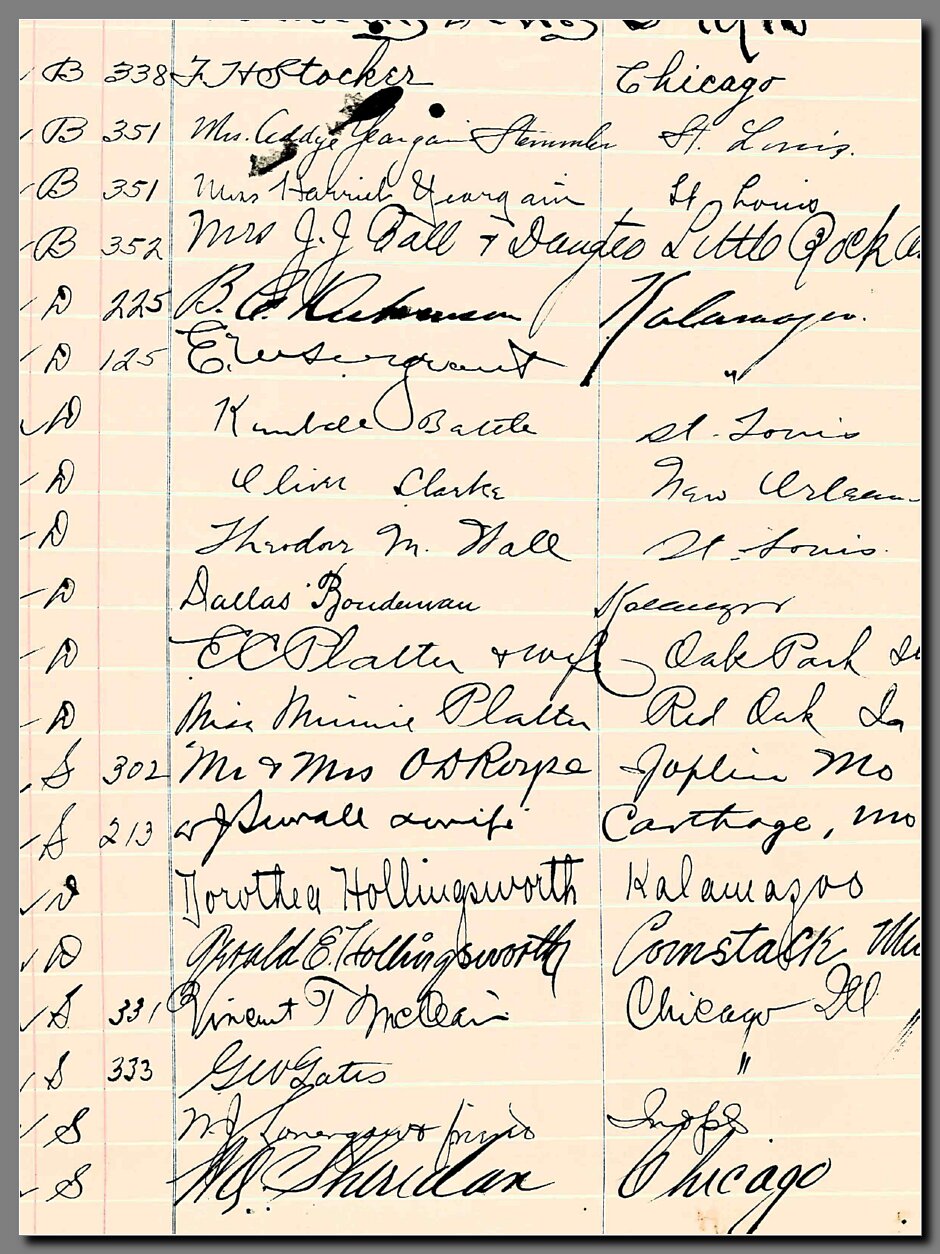 B 338 F. H Stocker Chicago
B 351 Mrs. Addye Yeargain Stemmler St. Louis.
B 351 Mrs Harriet Yeargain St Louis
B 352 Mrs J. J. Ball + Little Rock
D 225 B. Kalamazoo.
D 125 E. W Sergeant "
D Kimball Battle St. Louis
D Oliver Clarke New Orleans
D Theodore M. Wall St. Louis.
D Dallas Boudeman Kalamazoo
D E C Platter + wife Oak Park Ill
D Miss Minnie Platter Red Oak Ia
S 302 Mr & Mrs O D Royse Joplin Mo
S 213 W J Sewall & wife Carthage, Mo
D Dorothea Hollingsworth Kalamazoo
D Gerald E. Hollingsworth Comstock
S 331 Vincent T McClain Chicago Ill
S 333 Geo Gates "
S Indpls
S Sheridan Chicago